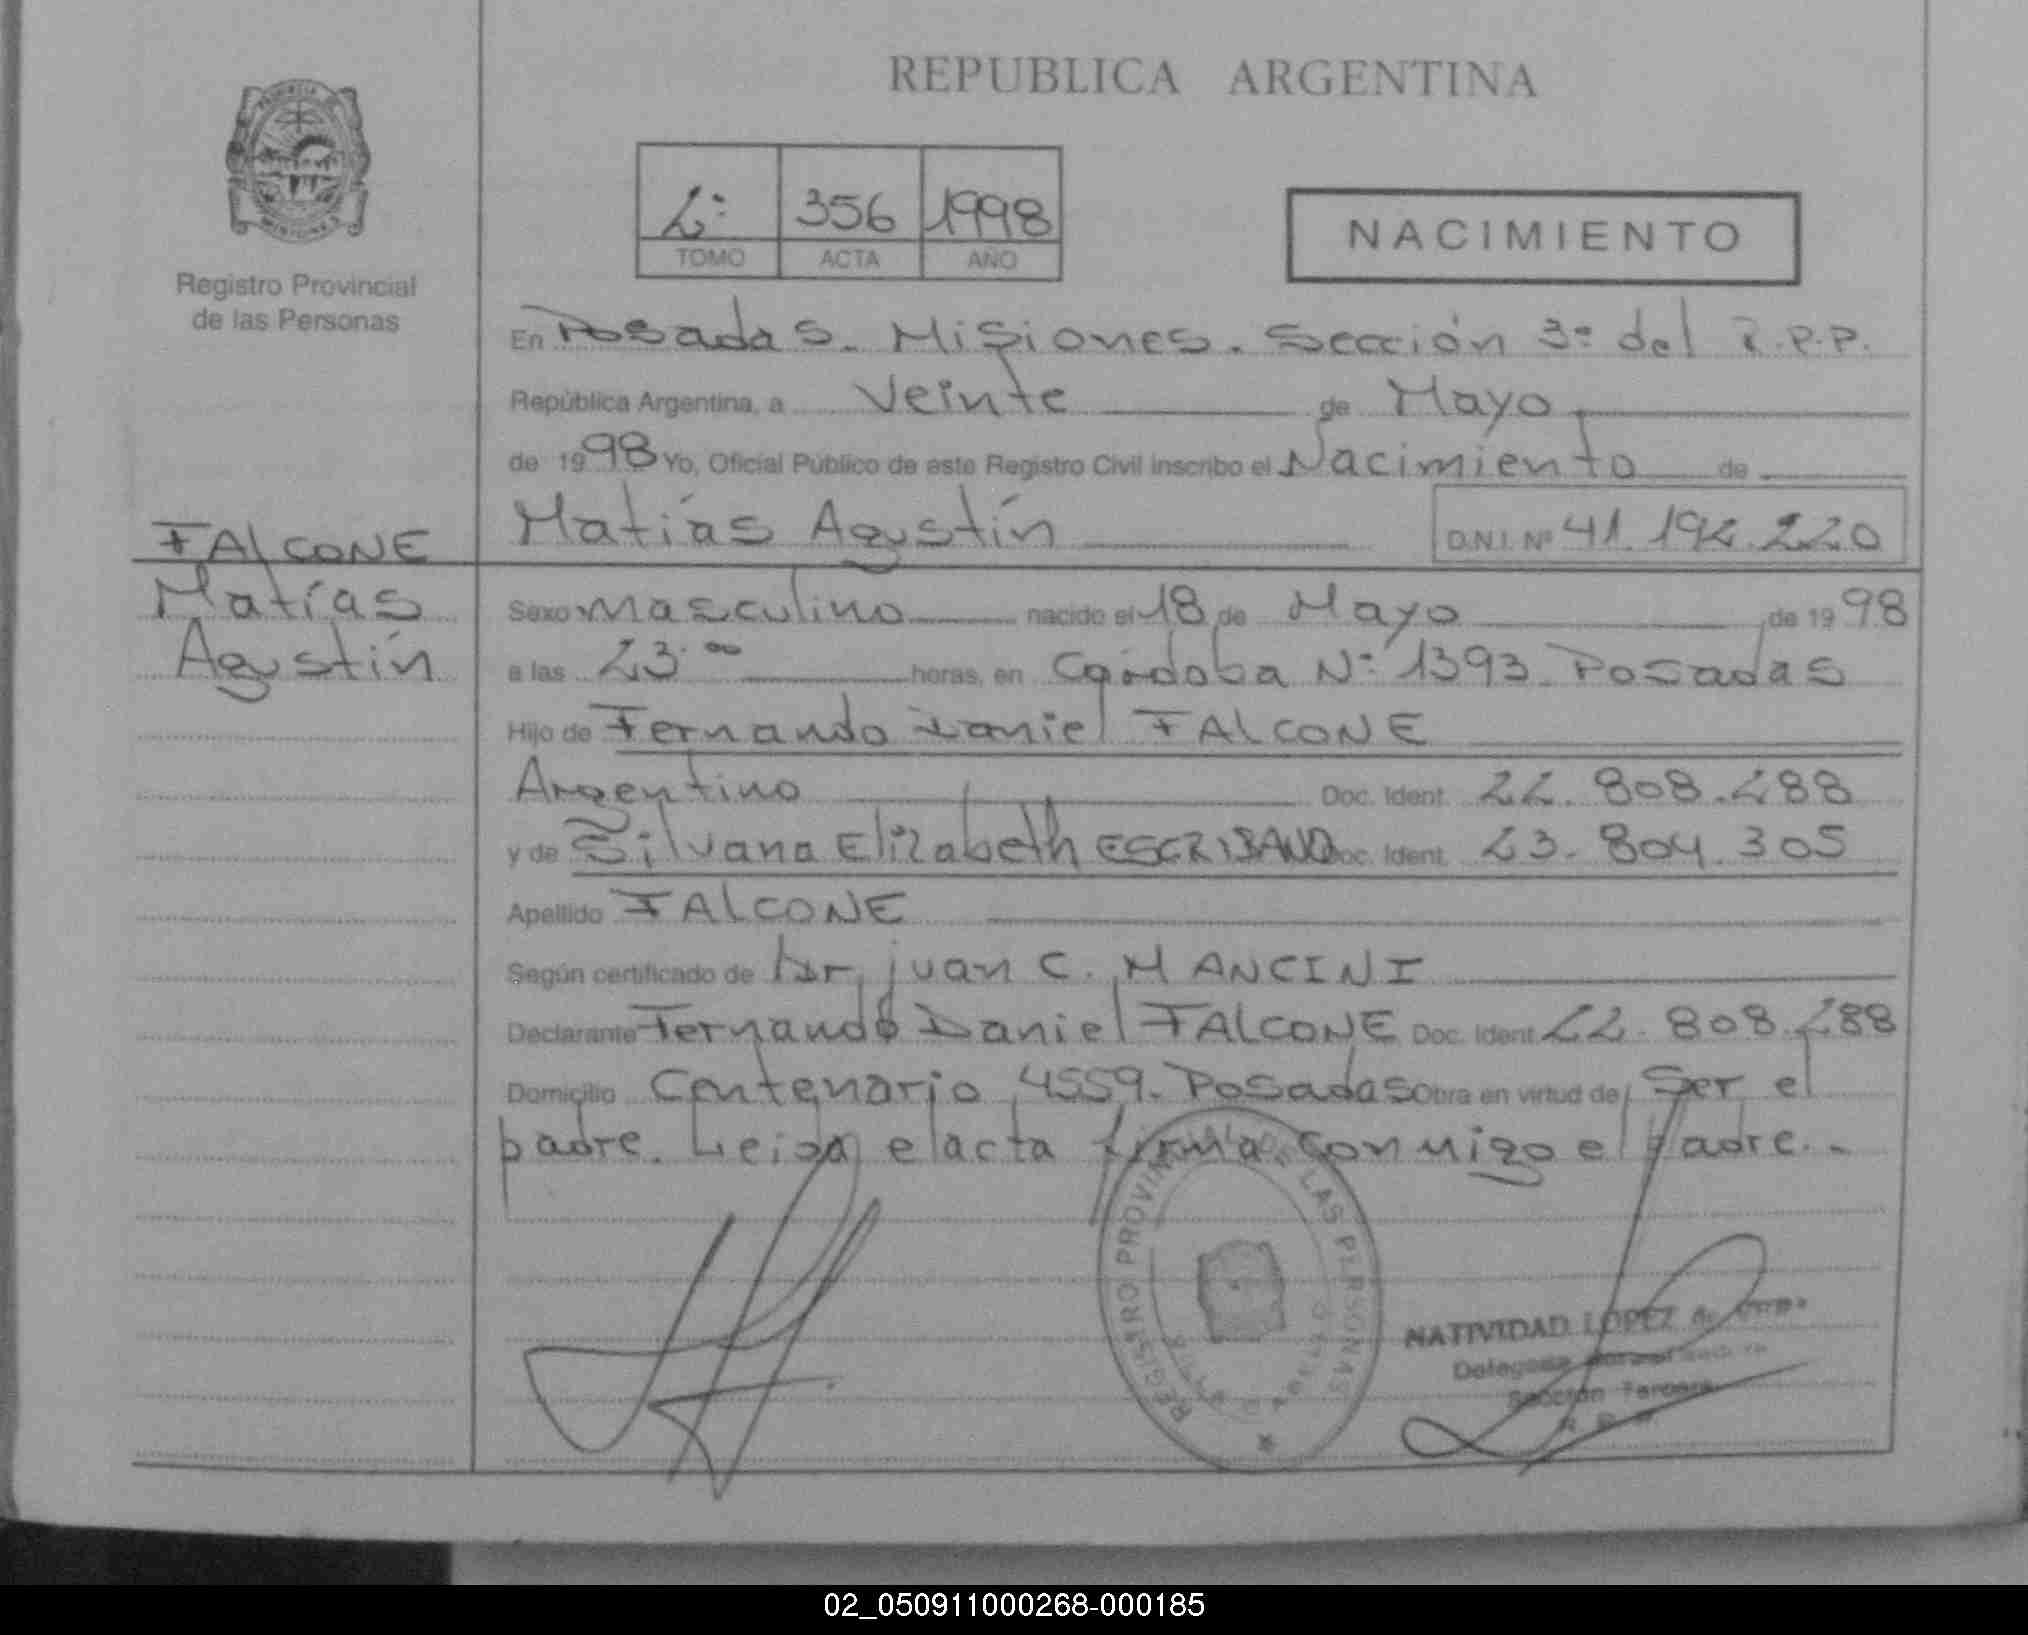 REPUBLICA ARGENTINA
2º 356 1998
TOMO ACTA AÑO
NACIMIENTO
PROVINCIA DE
MISIONES
Registro Provincial
de las Personas
En Posadas. Misiones. Sección 3º del R.P.P.
República Argentina, a Veinte de Mayo
de 1998 Yo, Oficial Público de este Registro Civil inscribo el Nacimiento de
Matías Agustín D.N.I. Nº 41.194.220
FALCONE
Matías
Agustín
Sexo masculino nacido el 18 de Mayo de 1998
a las 23.00 horas, en Córdoba Nº 1393. Posadas
Hijo de Fernando Daniel FALCONE
Argentino Doc. Ident. 22.808.288
y de Silvana Elizabeth ESCRIBANO Doc. Ident. 23.804.305
Apellido FALCONE
Según certificado de Dr. Juan C. MANCINI
Declarante Fernando Daniel FALCONE Doc. Ident. 22.808.288
Domicilio Centenario 4559. Posadas Obra en virtud de Ser el
padre. Leida el acta firma conmigo el padre.-
REGISTRO PROVINCIAL DE LAS PERSONAS
NATIVIDAD LOPEZ de
Delegada
Sección Tercera
02_050911000268-000185